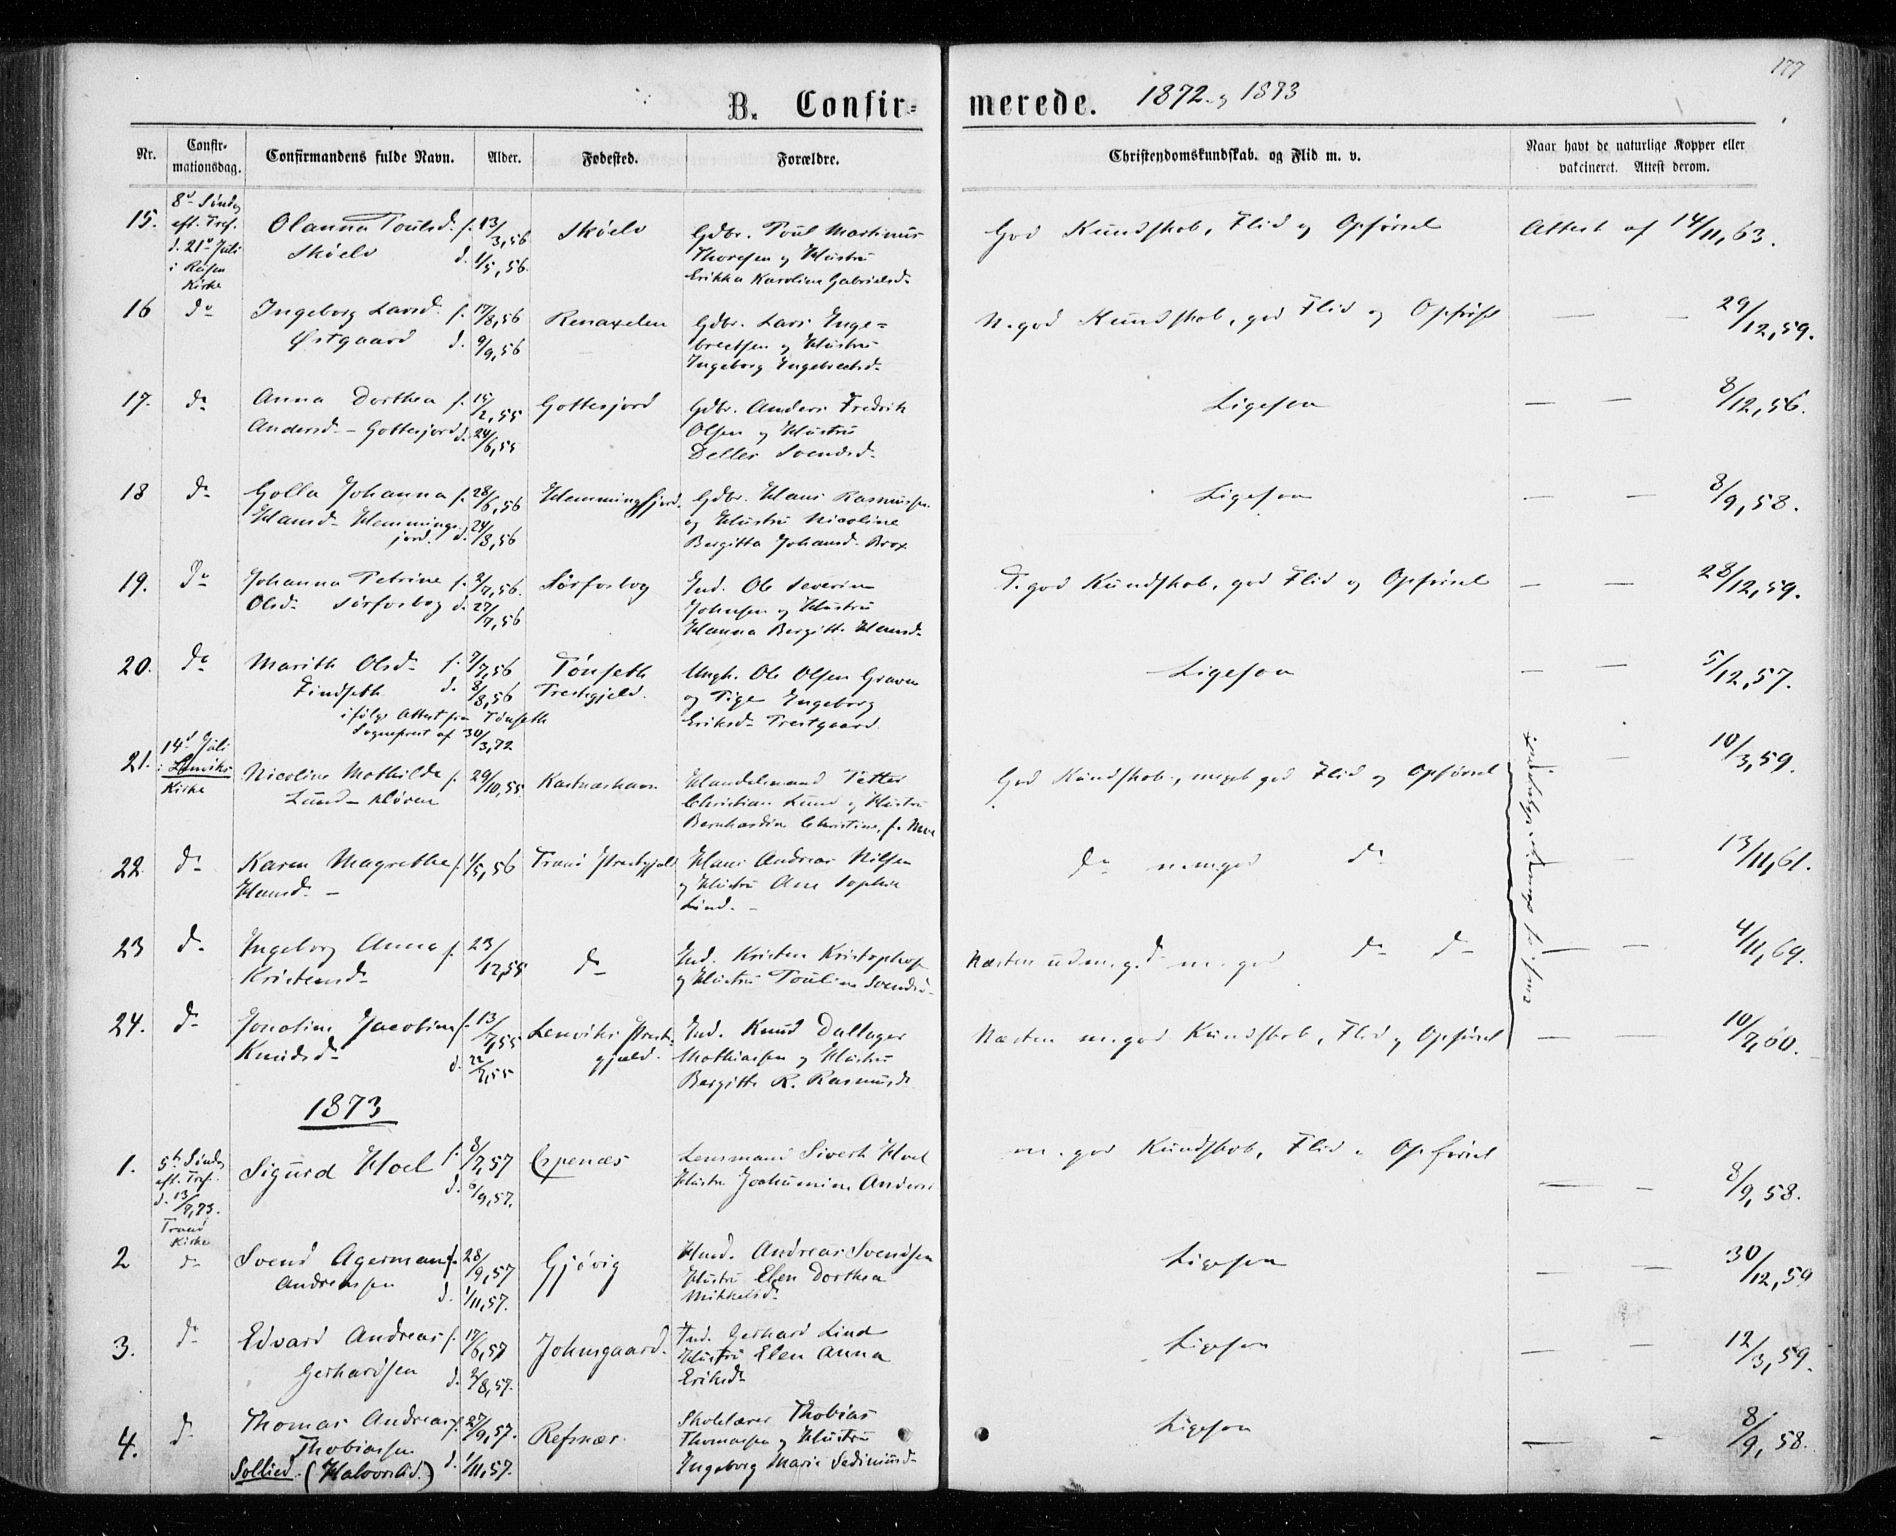 177
B. Confir=
merede. 1872 og 1873
Nr.
Confir-
mationsdag.
Confirmandens fulde Navn.
Alder.
Fødested.
Forældre.
Christendomskundskab. og Flid m. v.
Naar havt de naturlige Kopper eller
vakcineret. Attest derom.
15.
8d Sønd.
eft. Tref.
d. 21d Juli
i Reisen
Kirke
Olanna Poulsd. f. 13/3,56
Sköelv d. 1/5,56.
Sköelv
Gdbr. Poul Martinus
Thoresen og Hustru
Erikka Karoline Gabrielsd.
God Kundskab, Flid og Opførsel
Attest af 14/11,63.
16
do
Ingeborg Larsd. f. 17/8,56
Østgaard d. 9/9,56
Renaxelen
Gdbr. Lars Enge=
bretsen og Hustru
Ingeborg Engebretsd.
N. god Kundskab, god Flid og Opførsel
— — 29/12,59.
17.
do
Anna Dorthea f. 15/2,55
Andersd. - Gottesjord d. 24/6,55
Gottesjord
Gdbr. Anders Fredrik
Olsen og Hustru
Deller Svendsd.
Ligesaa
— — 8/12,56.
18
do
Golla Johanna f. 28/6,56
Hansd. Hemmings-
jord. d. 24/8,56
Hemmingsfjord.
Gdbr. Hans Rasmussen
og Hustru Nicoline
Bergitta Johansd. Brox
Ligesaa
— — 8/9,58.
19.
do
Johanna Petrine f. 2/7,56.
Olsd. Sørfosbog d. 27/7,56
Sørfosbog
Ind. Ole Severin
Johnsen og Hustru
Hanna Bergitte Hansd.
T. god Kundskab, god Flid og Opførsel
— — 28/12,59.
20.
do
Marith Olsd. f. 7/7,56
Findseth d. 8/8,56
ifølge Attest fra Tønseth
Sognepræst af 30/3,72
Tönseth
Prestegjeld.
Ungk. Ole Olsen Graven
og Pige Ingeborg
Eriksd. Prestgaard
Ligesaa
— — 5/12,57.
21.
14d Juli
i Lenviks
Kirke
Nicoline Mathilde f. 29/10,55.
Lund - Kløven
Kastneshavn
Handelsmand Petter
Christian Lund og Hustru
Bernhardine Christine, f.
God Kundskab, meget god Flid og Opførsel
— 10/3,59.
22
do
Karen Magrethe f. 1/5,56
Hansd. —
Tranø Prestegjeld
Hans Andreas Nilsen
og Hustru Ane Sophie
Lind. —
do m. god do
— 13/11,61.
23
do
Ingeborg Anna f. 23/12,55
Kristensd.
do
Ind. Kristen Kristophers.
og Hustru Pouline Svendsd.
Næsten udm. gd. m. god do do
— — 4/11,69.
24.
do
Jonotine Jacobine f. 13/7,55
Knudsd. d. 22/7,55
Lenviks Prest-
gjæld.
Ind. Knud Dallager
Mathiassen og Hustru
Bergitte R. Rasmusd.
Næsten m. god Kundskab, Flid og Opførsel
— — 10/7,60.
1873
1.
5te Sønd.
eft. Tref.
d. 13/7,73.
Tranø
Kirke
Sigurd Hoel f. 8/7,57
d. 6/9,57.
Espenæs
Lensmand Sivert Hoel
Hustru Joakimine Anders.
m. god Kundskab, Flid og Opførsel
— — 8/9,58.
2
do
Svend Agerman f. 28/9,57
Andreassen d. 1/11,57.
Gjövig
Hmd. Andreas Svendsen
Hustru Elen Dorthea
Mikkelsd.
Ligesaa
— — 30/12,59
3.
do
Edvard Andreas f. 17/6,57
Gerhardsen d. 2/8,57.
Johnsgaard.
Ind. Gerhard Lind
Hustru Elen Anna
Eriksd.
Ligesaa
— — 12/3,59.
4.
do
Thomas Andreas f. 27/9,57.
Thobiassen
Sollied. (Halvorslid.) d. 1/11,57.
Refsnæs.
Skolelærer Thobias
Thomassen og Hustru
Ingeborg Marie Sediniusd.
Ligesaa
— — 8/9,58.